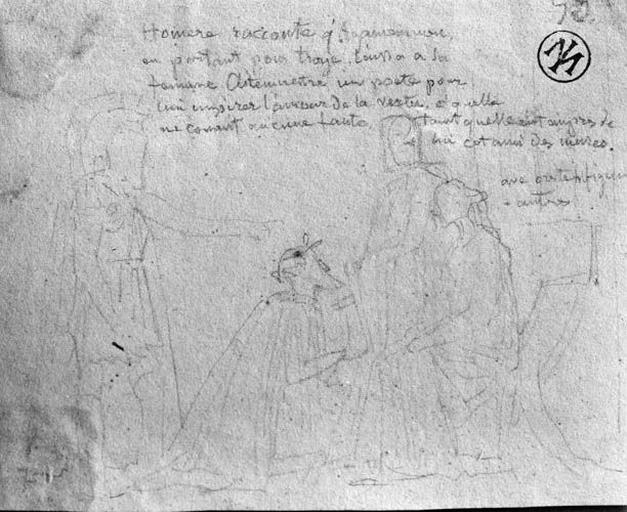 Homere racconte q' Agamemnon,
en partant pour troye, laissa a sa
femme Clitemnetre un poete pour
lui inspirer l'amour de la vertu, e quelle
ne comit aucune faute, tant quelle eut aupres de
lui cet ami des muses.
ave
autres